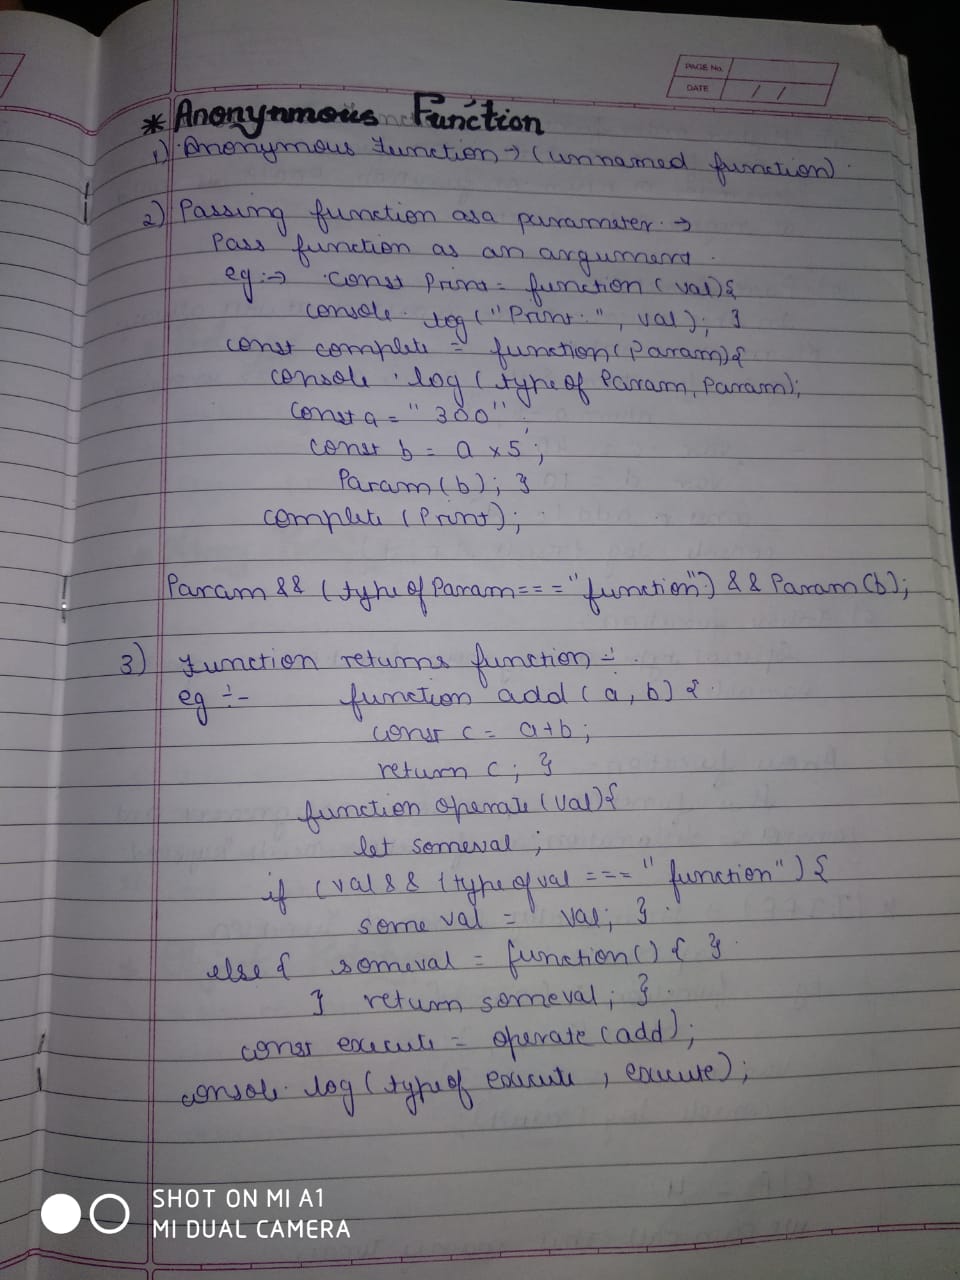 PAGE No.
DATE / /
* Anonynmous Function
1) Anonymous function → (unnamed function).
2) Passing function as a parameter. →
Pass function as an argument.
eg :→ const Print = function (val){
console.log("Print:", val); }
const complete = function(Param){
console.log (typeof Param, Param);
const a = "300";
const b = a x 5;
Param(b); }
complete (Print);
Param && (typeof Param === "function") && Param(b);
3) function returns function ÷.
eg ÷- function add (a, b) {
const c = a+b;
return c; }
function operate (val){
let someval;
if (val && (typeof val === "function") {
some val = val; }
else { someval = function() { }
} return someval; }
const execute = operate (add);
console.log (typeof execute, execute);
SHOT ON MI A1
MI DUAL CAMERA